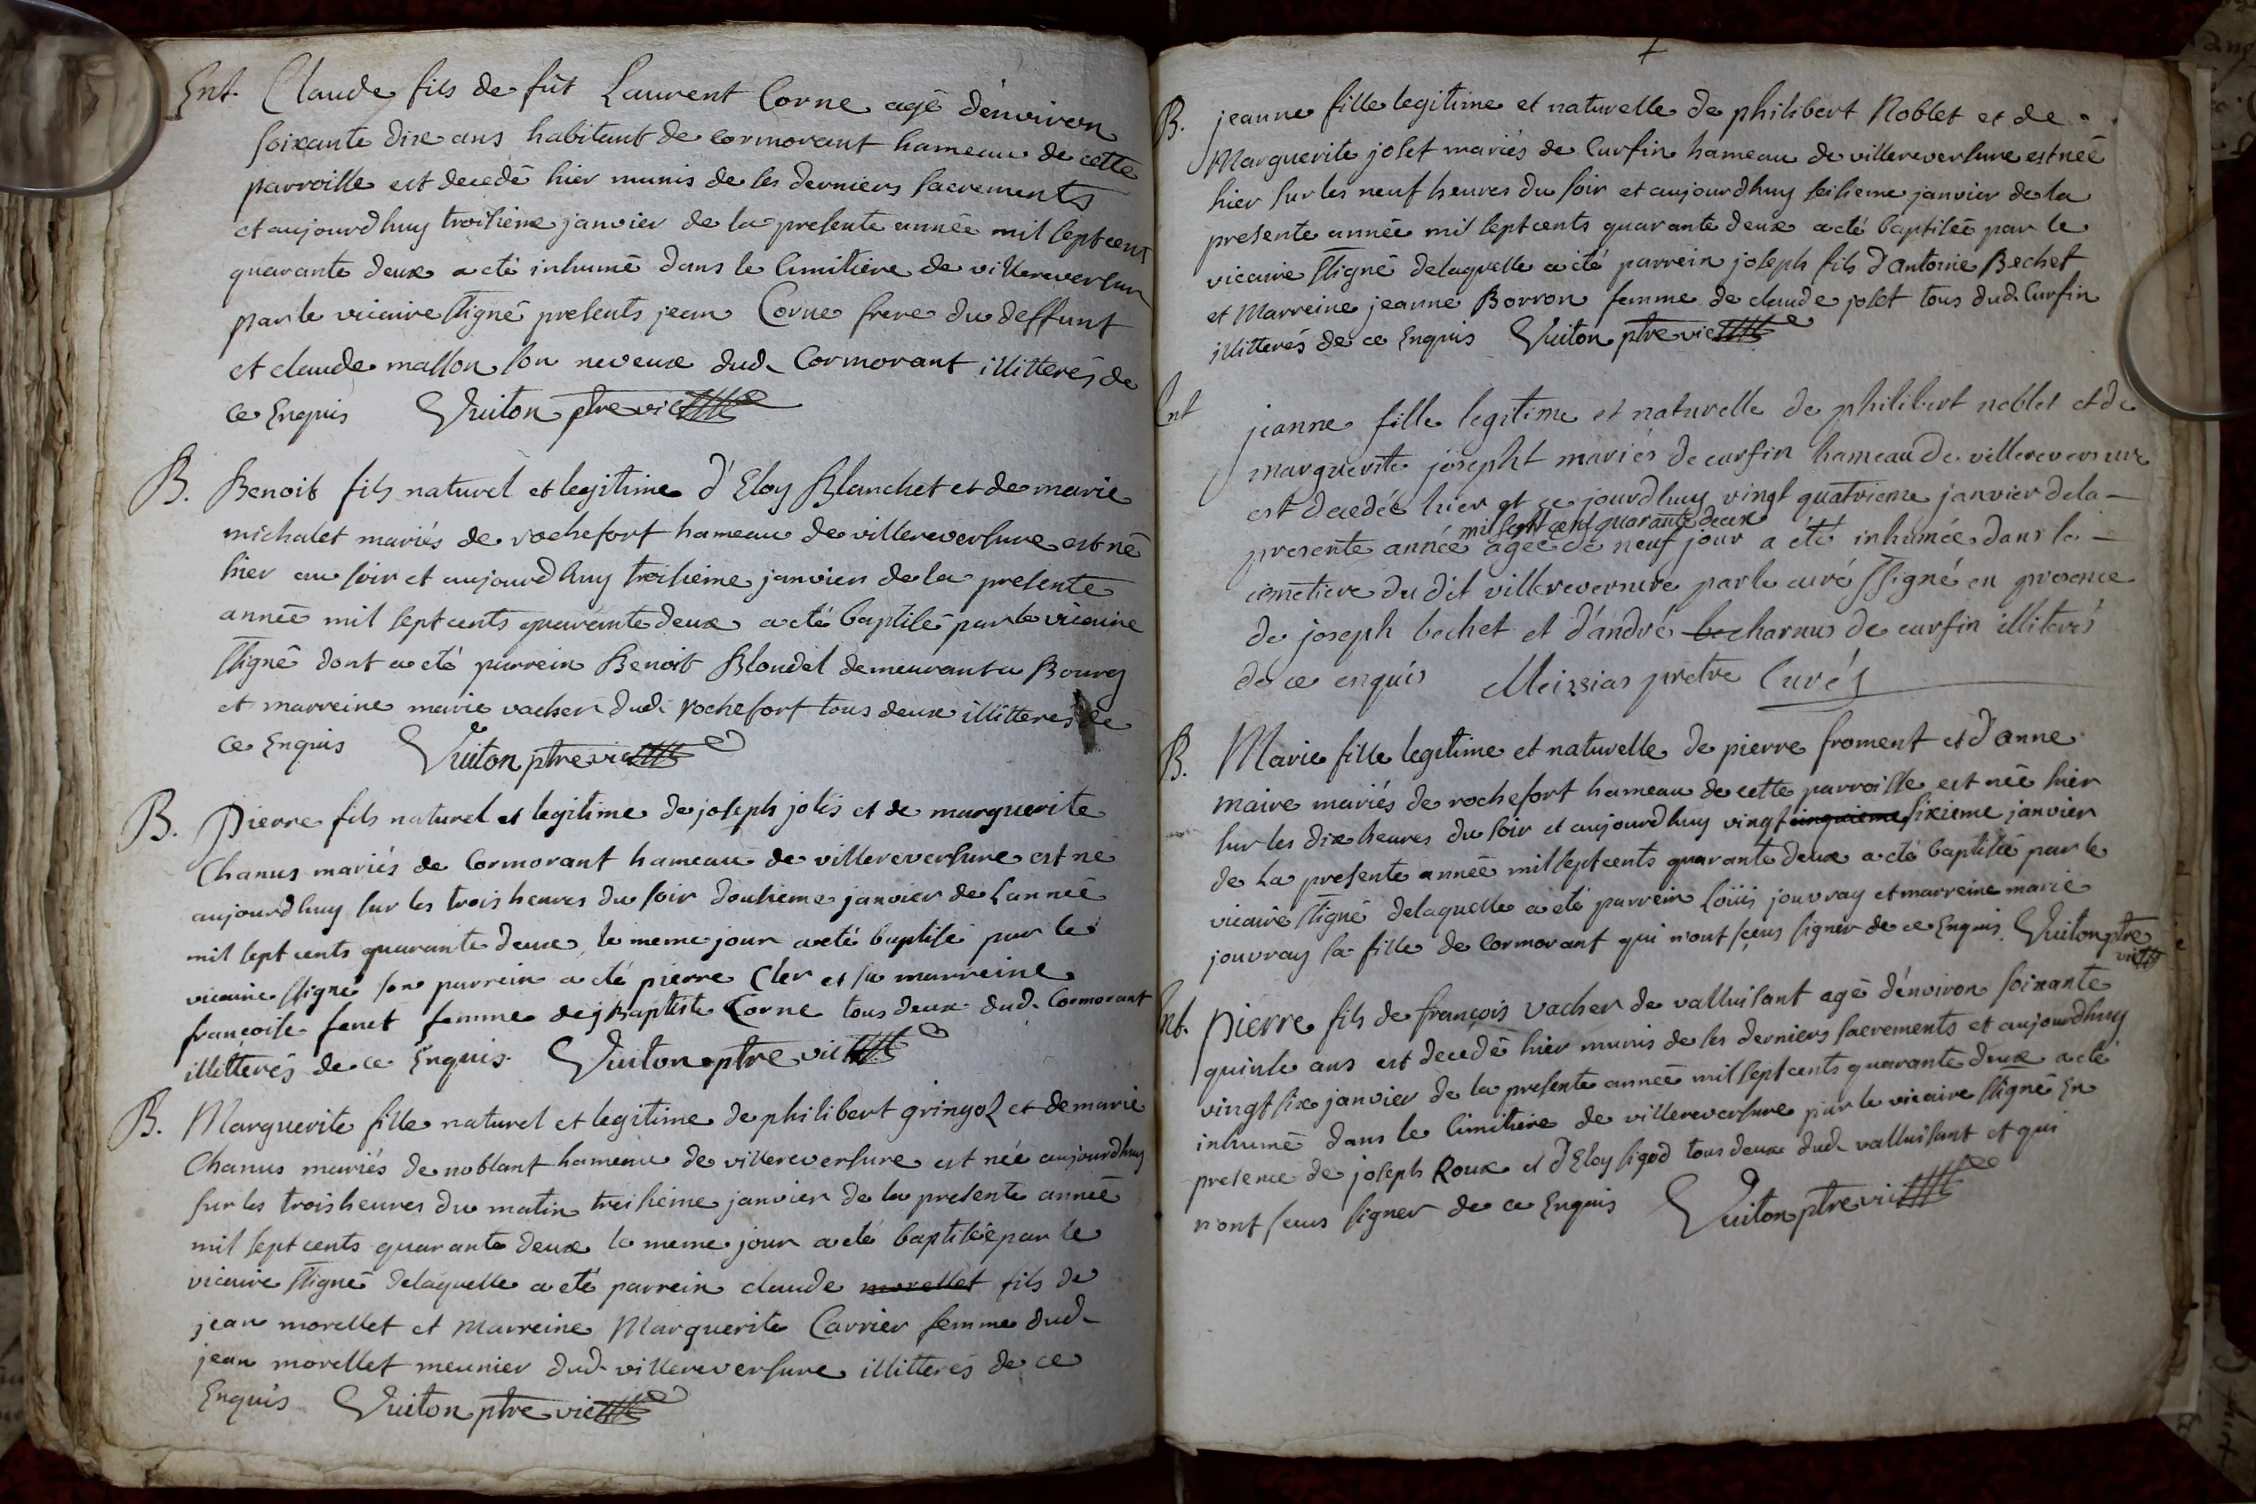 Ent. Claude fils de fut Laurent Corne agé d'environ
soixante dix ans habitant de cormorant hameau de cette
parroisse est decedé hier munis de ses derniers sacrements
et aujourdhuy troisième janvier de la presente année mil sept cent
quarante deux a eté inhumé dans le cimitière de villereversure
par le vicaire ssigné presents jean Corne frere du deffunt
et claude masson son neveux dud. Cormorant illitterés de
ce Enquis Vuiton ptre vic
B. Benoit fils naturel et legitime d'Eloy Blanchet et de marie
michalet mariés de rochefort hameau de villereversure est né
hier au soir et aujourdhuy troisieme janvier de la presente
année mil sept cents quarante deux a eté baptisé par le vicaire
ssigné dont a eté parrein Benoit Blondel demeurant a Bourg
et marreine marie vacher dud. rochefort tous deux illitteres de
ce Enquis Vuiton ptre vic
B. Pierre fils naturel et legitime de joseph jolis et de marguerite
Chanus mariés de Cormorant hameau de villereversure est ne
aujourdhuy sur les trois heures du soir douzieme janvier de Lannée
mil sept cents quarante deux le meme jour a eté baptisé par le
vicaire ssigné son parrein a eté pierre Cler et sa marreine
françoise feret femme de j Baptiste Corne tous deux dud. Cormorant
illitterés de ce Enquis. Vuiton ptre vic
B. Marguerite fille naturel et legitime de philibert gringoz et de marie
Chanus mariés de noblant hameau de villereversure est née aujourdhuy
sur les trois heures du matin treisieme janvier de la presente année
mil sept cents quarante deux le meme jour a eté baptisée par le
vicaire ssigné delaquelle a eté parrein claude morellet fils de
jean morellet et Marreine Marguerite Carrier femme dud.
jean morellet meunier dud. villereversure illitterés de ce
Enquis Vuiton ptre vic
B. jeanne fille legitime et naturelle de philibert Noblet et de
Marguerite joset mariés de Curfin hameau de villereversure est née
hier sur les neuf heures du soir et aujourdhuy seisieme janvier de la
presente année mil sept cents quarante deux a eté baptisée par le
vicaire ssigné delaquelle a eté parrein joseph fils d'antoine Bechet
et Marreine jeanne Borron femme de claude joset tous dud. Curfin
illitterés de ce Enquis Vuiton ptre vic
Ent jeanne fille legitime et naturelle de philibert noblet et de
marguerite josepht mariés de curfin hameau de villereversure
est decedée hier et ce jourdhuy vingt quatrieme janvier dela
mil sept cent quarante deux
presente année agée de neuf jour a été inhumée dans le
cimetiere du dit villereversure par le curé ssigné en presence
de joseph bechet et d'andré be charnus de curfin illiterés
de ce enquis Meissias pretre Curé
B. Marie fille legitime et naturelle de pierre froment et d'anne
maire mariés de rochefort hameau de cette parroisse est née hier
sur les dix heures du soir et aujourdhuy vingt cinquieme sixieme janvier
de la presente année mil sept cents quarante deux a eté baptisée par le
vicaire ssigné delaquelle a eté parrein Loüis jouvray et marreine marie
jouvray sa fille de Cormorant qui n'ont sçeus signer de ce Enquis. Vuiton ptre
vic
Ent. Pierre fils de françois vacher de valluisant agé d'environ soixante
quinze ans est decedé hier munis de ses derniers sacrements et aujourdhuy
vingt six janvier de la presente année mil sept cents quarante deux a eté
inhumé dans le Cimitière de villereversure par le vicaire ssigné En
presence de joseph Roux et d'Eloy sigod tous deux dud. valluisant et qui
n'ont sceus signer de ce Enquis Vuiton ptre vic